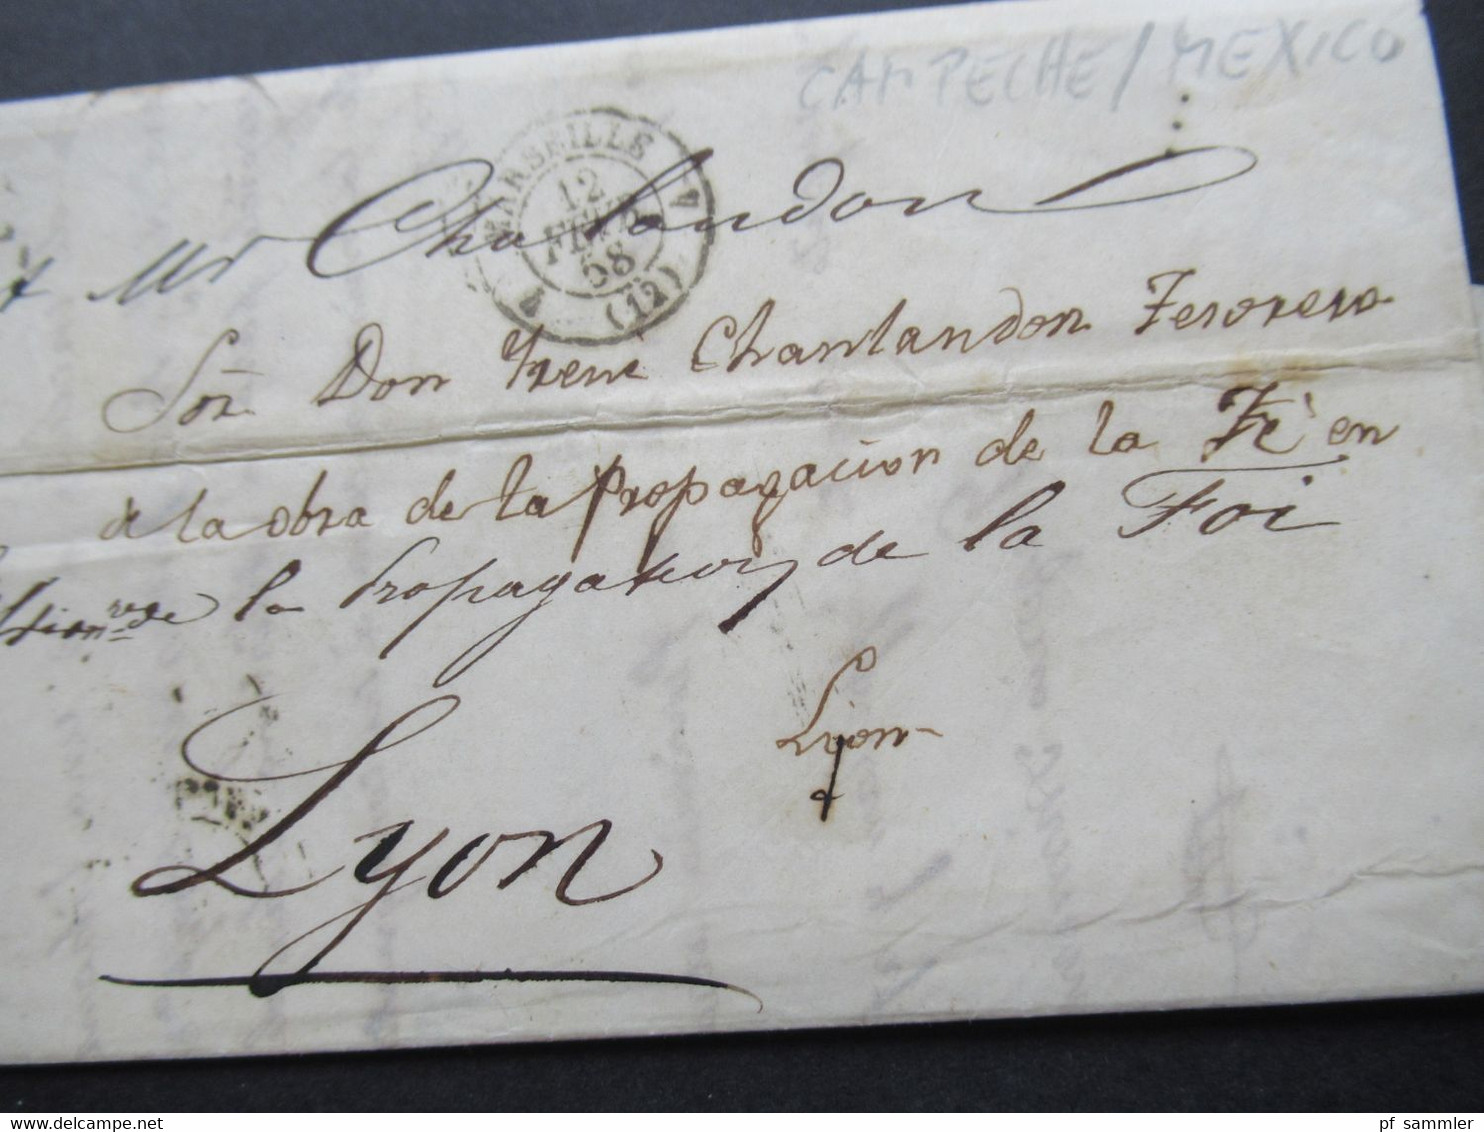 CAMPECHE / MEXICO
MARSEILLE
12
FEVR
58
4 (12) 4
Mr Chalandon
Sor. Don Irene Chanlandon Tesorero
de la obra de la Propagacion de la Fè en
de la Propagation de la Foi
Lyon
Lyon
pf sammler